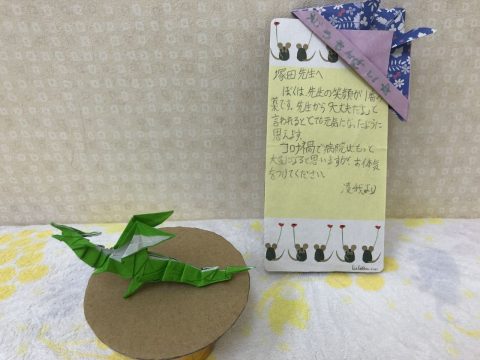 塚田先生へ
ぼくは、先生の笑顔が1番の
薬です。先生から「大丈夫だよ」と
言われるととても元気になったように
思えます。
コロナ禍で病院はもっと
大変になると思いますが、お体気
をつけてください。
より